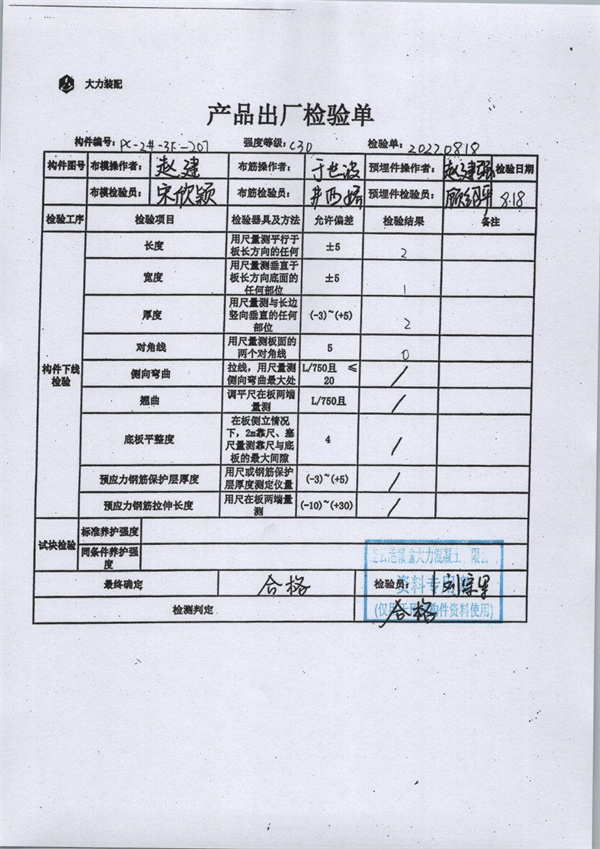 大力装配
产品出厂检验单
构件编号: PC-2#-3F-207 强度等级: C30 检验单: 20220818
构件图号 布模操作者: 赵建 布筋操作者: 于世波 预埋件操作者: 赵建强 检验日期
布模检验员: 宋欣颖 布筋检验员: 预埋件检验员: 8.18
检验工序 检验项目 检验器具及方法 允许偏差 检验结果 备注
构件下线检验
长度 用尺量测平行于板长方向的任何 ±5 2
宽度 用尺量测垂直于板长方向底面的任何部位 ±5 1
厚度 用尺量测与长边竖向垂直的任何部位 (-3)~(+5) 2
对角线 用尺量测板面的两个对角线 5 0
侧向弯曲 拉线，用尺量测侧向弯曲最大处 L/750且 ≤20 /
翘曲 调平尺在板两端量测 L/750且 /
底板平整度 在板侧立情况下，2m靠尺、塞尺量测靠尺与底板的最大间隙 4 /
预应力钢筋保护层厚度 用尺或钢筋保护层厚度测定仪量 (-3)~(+5) /
预应力钢筋拉伸长度 用尺在板两端量测 (-10)~(+30) /
试块检验 标准养护强度
同条件养护强度
最终确定 合格 检验员:
检测判定 合格
大力混凝土 限公
资料专用
构件资料使用)